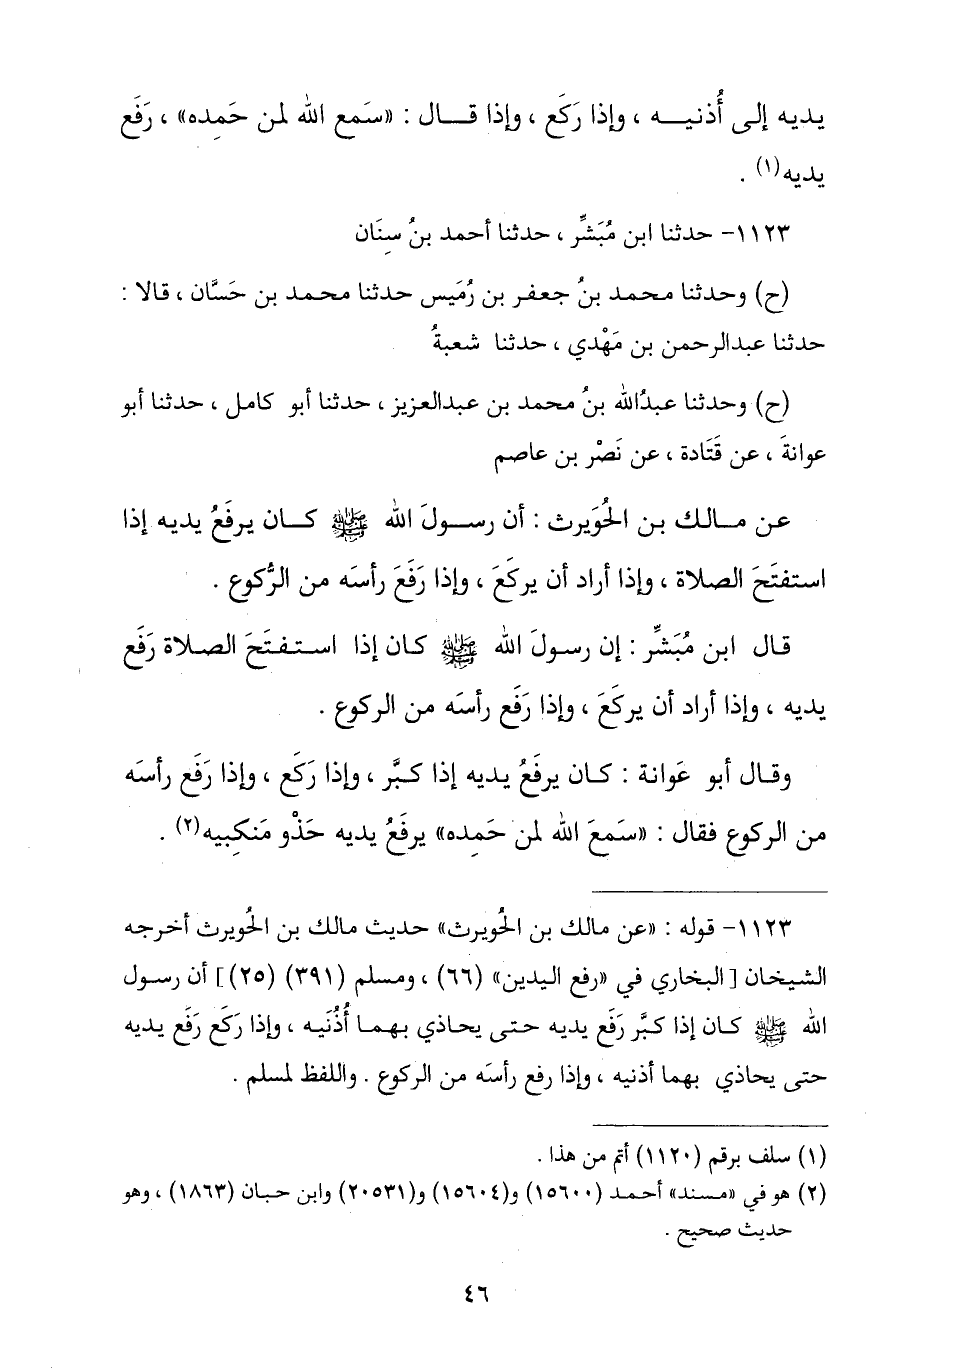 يديه إلى أُذنيـــه ، وإذا رَكَع ، وإذا قـــال : «سَمع الله لمن حَمِده» ، رَفَع
يديه(١) .
١١٢٣- حدثنا ابن مُبَشِّر ، حدثنا أحمد بنُ سِنَان
(ح) وحدثنا محمد بنُ جعفر بن رُمَيس حدثنا محمد بن حَسَّان ، قالا :
حدثنا عبدالرحمن بن مَهْدي ، حدثنا شعبةُ
(ح) وحدثنا عبدُالله بنُ محمد بن عبدالعزيز ، حدثنا أبو كامل ، حدثنا أبو
عوانةَ ، عن قَتَادة ، عن نَصْر بن عاصم
عن مـالك بن الحُوَيرث : أن رســولَ الله ﷺ كــان يرفَعُ يديه إذا
استفتَحَ الصلاة ، وإذا أراد أن يركَعَ ، وإذا رَفَعَ رأسَه من الرُّكوع .
قال ابن مُبَشِّر : إن رسولَ الله ﷺ كان إذا استـفـتَحَ الصـلاة رَفَع
يديه ، وإذا أراد أن يركَعَ ، وإذا رَفَع رأسَه من الركوع .
وقـال أبو عَوانة : كـان يرفَعُ يـديه إذا كبَّر ، وإذا رَكَع ، وإذا رَفَع رأسَه
من الركوع فقال : «سَمعَ الله لمن حَمِده» يرفَعُ يديه حَذْو مَنكِبيه(٢) .
١١٢٣- قوله : «عن مالك بن الحُويرث» حديث مالك بن الحُويرث أخرجه
الشيخان [البخاري في «رفع اليدين» (٦٦) ، ومسلم (٣٩١) (٢٥)] أن رسول
الله ﷺ كـان إذا كبَّر رَفَع يديه حتـى يحـاذي بهمـا أُذُنَيه ، وإذا ركَع رَفَع يديه
حتى يحاذي بهما أذنيه ، وإذا رفع رأسَه من الركوع . واللفظ لمسلم .
(١) سلف برقم (١١٢٠) أتم من هذا .
(٢) هو في «مسند» أحمد (١٥٦٠٠) و(١٥٦٠٤) و(٢٠٥٣١) وابن حبان (١٨٦٣) ، وهو
حديث صحيح .
٤٦